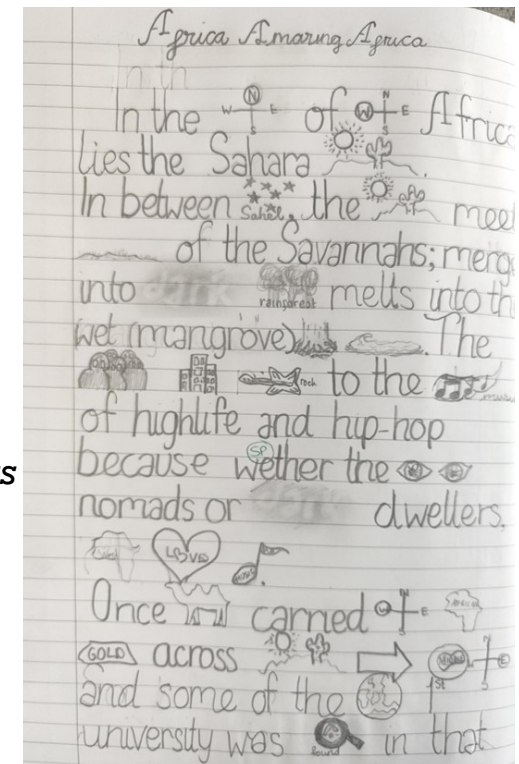 Africa Amazing Africa
In the N W E S of N W E S Africa
lies the Sahara
In between Sahel, the meet
of the Savannahs; merg
into rainforest melts into th
wet (mangrove) . The
rock to the music
of highlife and hip-hop
s
because wether the
SP
nomads or dwellers,
LOVE .
Once carried E
GOLD across E S
and some of the 1st
university was found in that